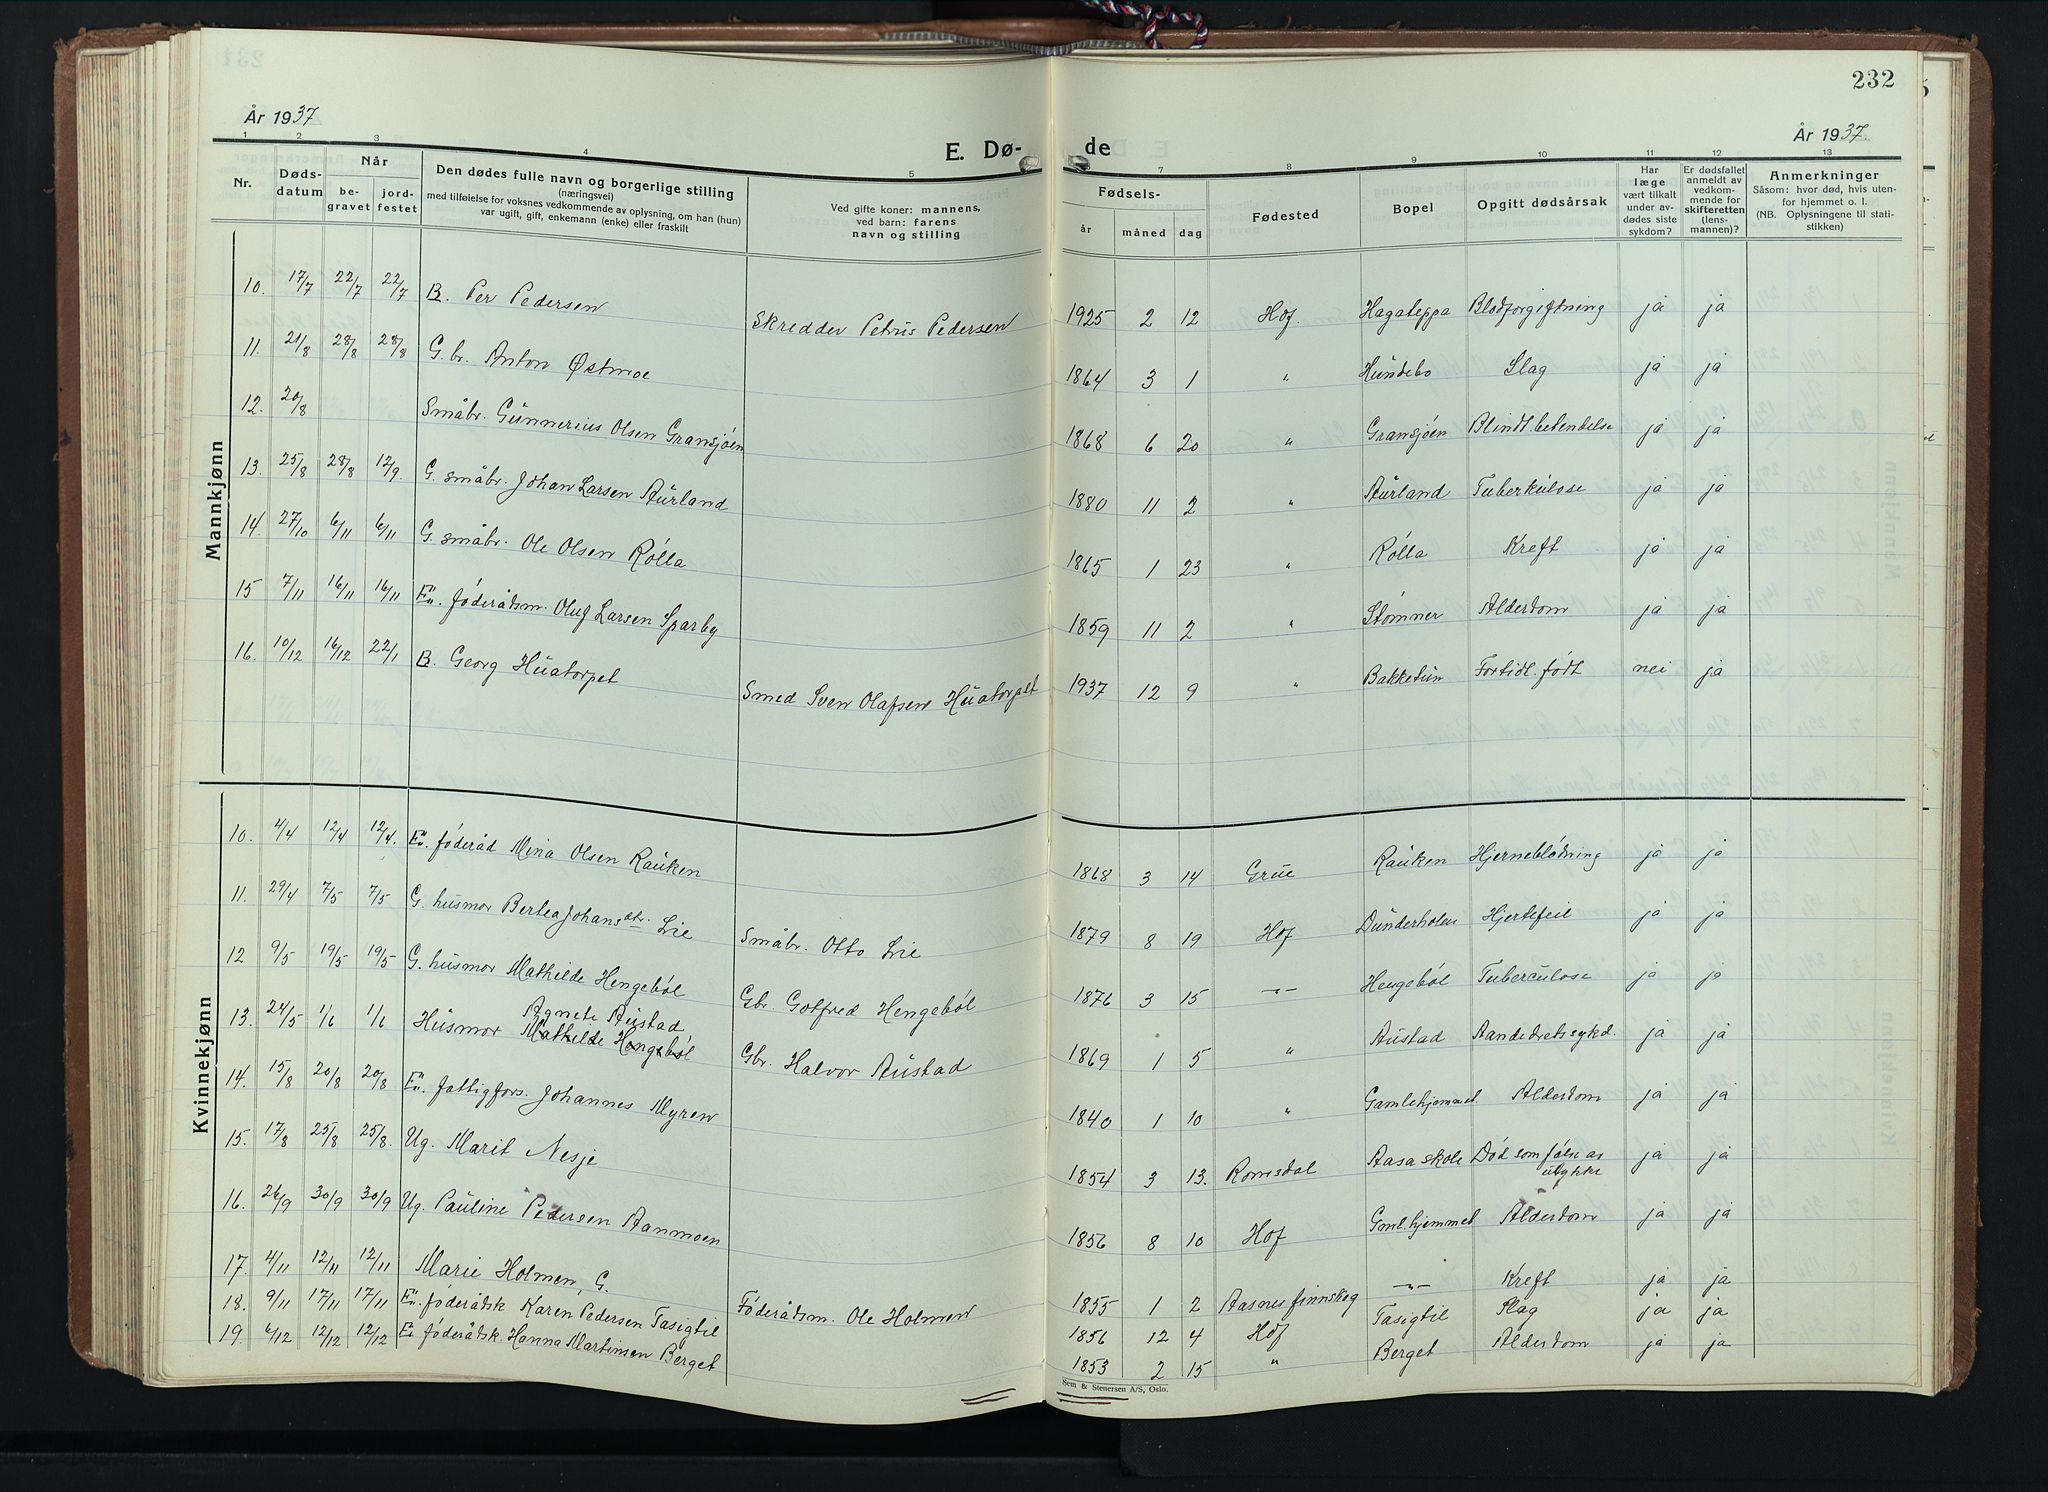 232
År 1937
År 1937
E. Dø-
de
1 2 3 4 5 7 8 9 10 11 12 13
Nr.
Døds-
datum
Når
be-
gravet
jord-
festet
Den dødes fulle navn og borgerlige stilling
(næringsvei)
med tilføielse for voksnes vedkommende av oplysning, om han (hun)
var ugift, gift, enkemann (enke) eller fraskilt
Ved gifte koner: mannens,
ved barn: farens
navn og stilling
Fødsels-
år måned dag
Fødested
Bopel
Opgitt dødsårsak
Har
læge
vært tilkalt
under av-
dødes siste
sykdom?
Er dødsfallet
anmeldt av
vedkom-
mende for
skifteretten
(lens-
mannen)?
Anmerkninger
Såsom: hvor død, hvis uten-
for hjemmet o. l.
(NB. Oplysningene til stati-
stikken)
Mannkjønn
10. 17/7 22/7 22/7 B. Per Pedersen Skredder Petrus Pedersen 1925 2 12 Hof. Hagateppa Blodforgiftning ja ja
11. 21/8 28/8 28/8 G.br. Anton Østmoe 1864 3 1 " Hundebo Slag ja ja
12. 20/8 Småbr. Gunnerius Olsen Gransjøen 1868 6 20 " Gransjøen Blindt.betendelse ja ja
13. 25/8 28/8 12/9. G. småbr. Johan Larsen Aurland 1880 11 2 " Aurland Tuberkulose ja ja
14. 27/10 6/11 6/11 G. småbr. Ole Olsen Rølla 1865 1 23 " Rølla Kreft ja ja
15 7/11 16/11 16/11 Em. føderådsm. Oluf Larsen Sparby 1859 11 2 " Stømner Alderdom ja ja
16. 10/12 16/12 22/1 B. Georg Huatorpet Smed Sven Olafsen Huatorpet 1937 12 9 " Bakketun Fortidl. født nei ja
Kvinnekjønn
10. 4/4 12/4 12/4. En. føderåd Mina Olsen Rauken 1868 3 14 Grue Rauken Hjerneblødning ja ja
11. 29/4 7/5 7/5 G. husmor Bertea Johansdtr. Lie Småbr. Otto Lie 1879 8 19 Hof Dunderholen Hjertefeil ja ja
12 9/5 19/5 19/5 G. husmor Mathilde Hengebøl Gbr. Gotfred Hengebøl 1876 3 15 -"- Hengebøl Tuberculose ja ja
Agnete Austad
13. 24/5 1/6 1/6 Husmor Mathilde Hengebøl Gbr. Halvor Austad 1869 1 5 " Austad Aandedretssykd. ja ja
14. 15/8 20/8 20/8 En. fattigfors. Johannes Myren 1840 1 10 " Gamlehjemmet Alderdom ja ja
15. 17/8 25/8 25/8. Ug. Marit Nesje 1854 3 13. Romsdal Aasa skole Død som følge av
ulykke ja ja
16. 26/9 30/9 30/9 Ug. Pauline Pedersen Aanmoen 1856 8 10 Hof Gml.hjemmet Alderdom ja ja
17. 4/11 12/11 12/11 Marie Holmen, G. Føderådsm. Ole Holmen 1855 1 2 Aasnes finnskog -"- Kreft ja ja
18. 9/11 17/11 17/11 En. føderådsk Karen Pedersen Tasigtil 1856 12 4 Hof Tasigtil Slag ja ja
19. 6/12 12/12 12/12 E. føderådsk. Hanna Martinsen Berget 1853 2 15 " Berget Alderdom ja ja
Sem & Stenersen A/S, Oslo.